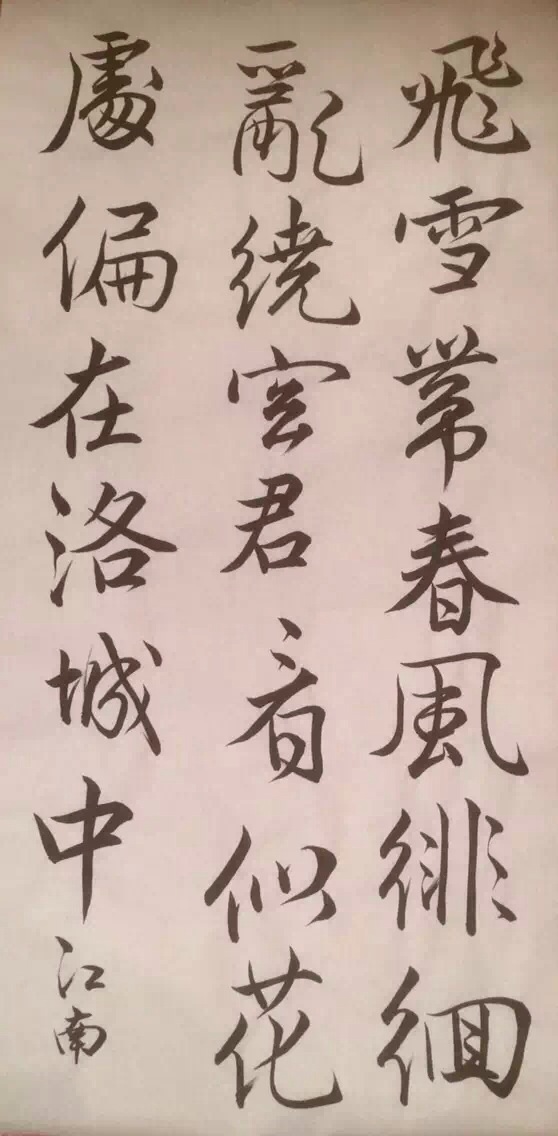 飛雪帶春風徘徊
亂繞空君看似花
處偏在洛城中
江南